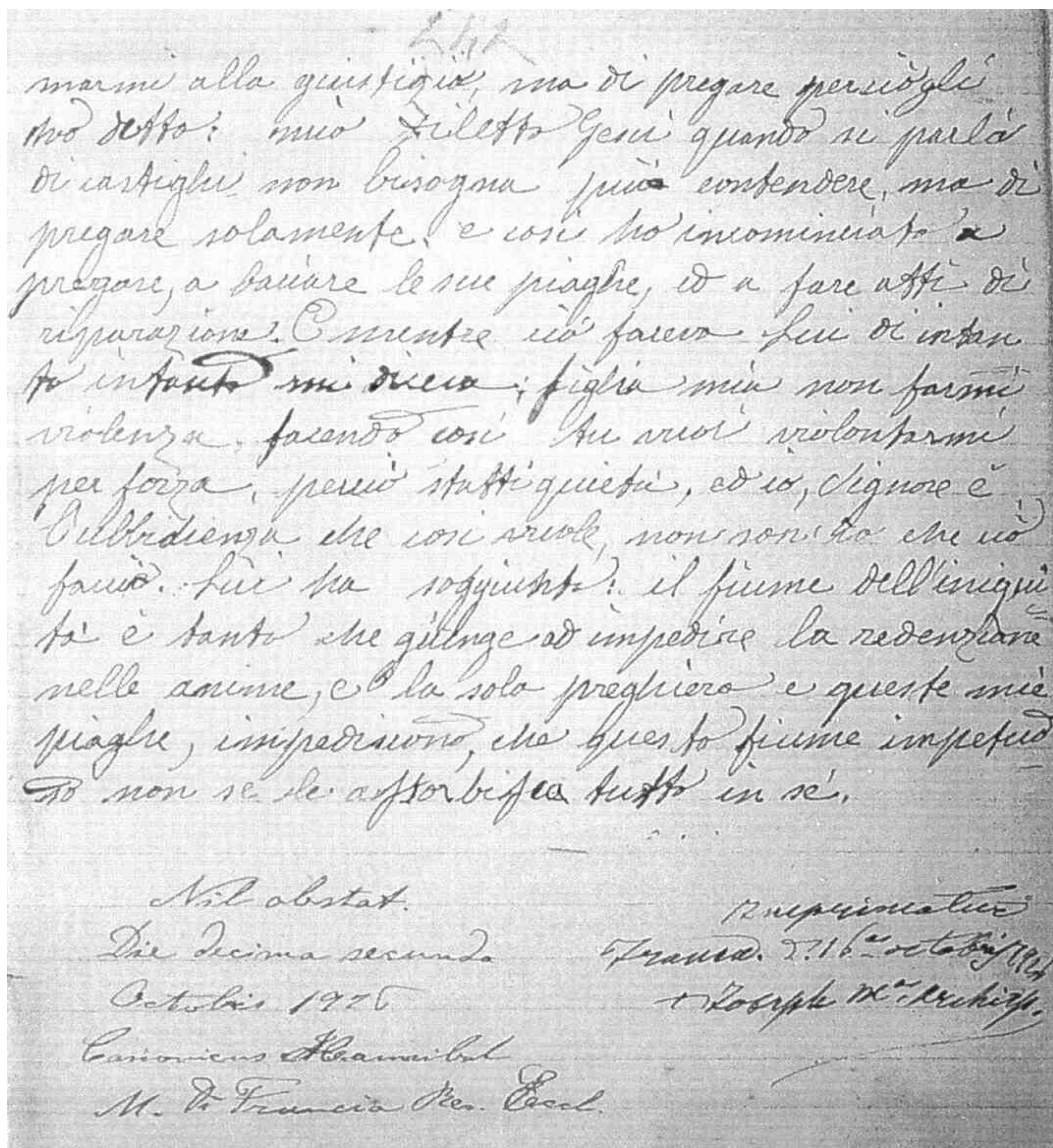 242
marmi alla giustizia, ma di pregare perciò gli
ho detto: mio Diletto Gesù quando si parla
di castighi non bisogna più contendere, ma di
pregare solamente. e così ho incominciato a
pregare, a baciare le sue piaghe, ed a fare atti di
riparazione. E mentre ciò facevo Lui di intan
to intanto mi diceva: figlia mia non farmi
violenza, facendo così tu vuoi violentarmi
per forza, perciò statti quieta, ed io, Signore è
l'ubbidienza che così vuole, non son io che ciò
faccio. Lui ha soggiunto: il fiume dell'iniqui
tà è tanto che giunge ad impedire la redenzione
nelle anime, e la sola preghiera e queste mie
piaghe, impediscono, che questo fiume impetuo
so non se le assorbisca tutto in sé.
Nil obstat.
Die decima secunda
Octobris 1926
Canonicus Hannibal
M. Di Francia Rev. Eccl.
Imprimatur
octobris
+ Joseph M. Archiep.